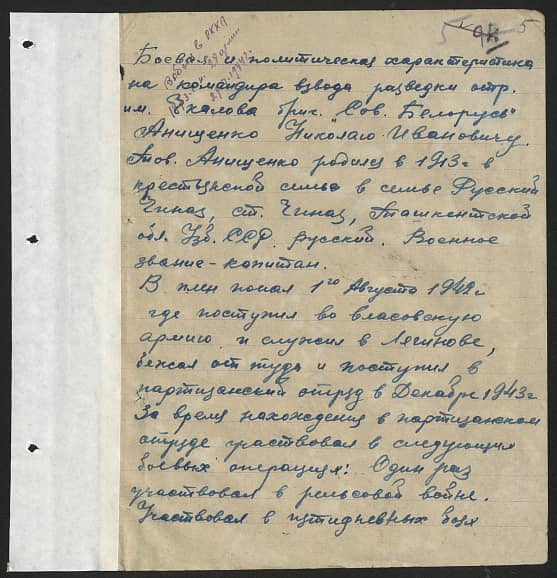 5 5
Выбыл в РККА
39 армии
1943 г.
Боевая и политическая характеристика
на командира взвода разведки отр.
им. Чкалова бриг. "Сов. Белорусь"
Анищенко Николаю Ивановичу.
Тов. Анищенко родился в 1913 г в
крестьянской семье в семье Русский
Чиназ, ст. Чиназ, Ташкентской
обл. Узб. ССР. русский. Военное
звание - капитан.
В плен попал 1го Августа 1942 г
где поступил во власовскую
армию и служил в
бежал оттуда и поступил в
партизанский отряд в Декабре 1943 г
За время нахождения в партизанском
отряде участвовал в следующих
боевых операциях: Один раз
участвовал в рельсовой войне.
Участвовал в пятидневных боях